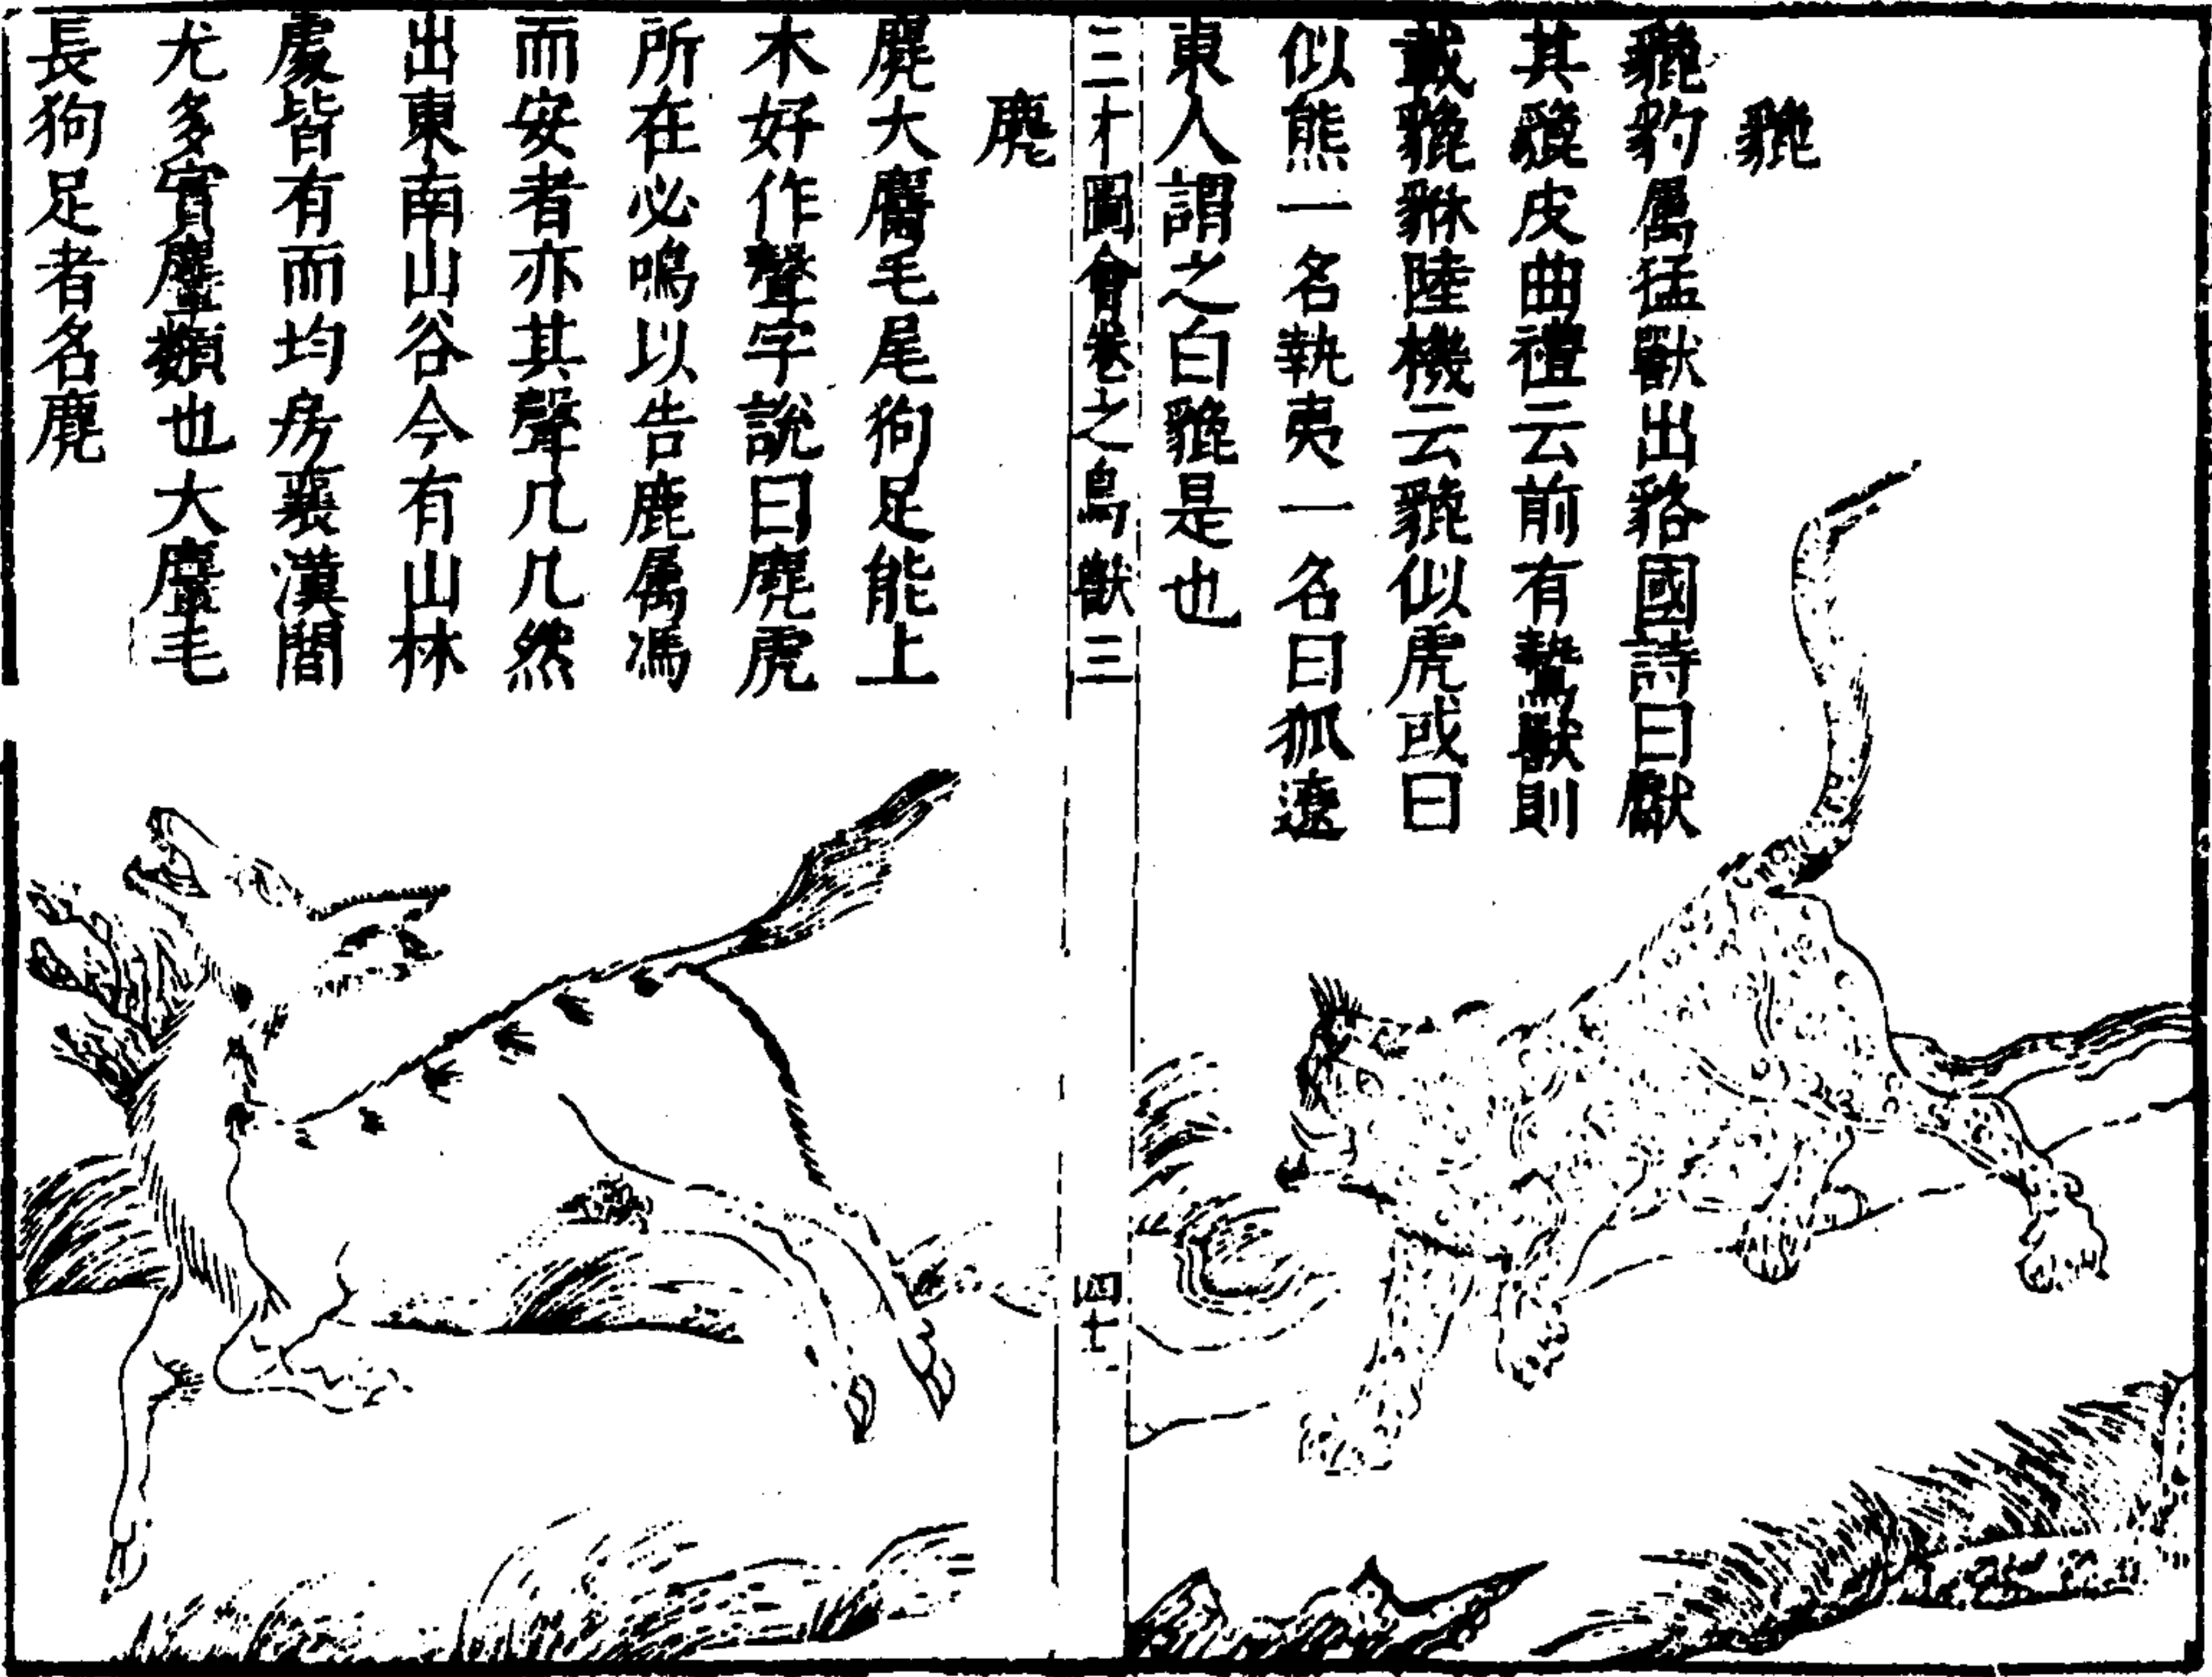 貔
貔豹屬猛獸出貉國詩曰獻
其貔皮曲禮云前有鷙獸則
載貔貅陸機云貔似虎或曰
似熊一名執夷一名曰狐遼
東人謂之白貔是也
三才圖會卷之鳥獸三
四十
麂
麂大麕毛尾狗足能上
木好作聲字說曰麂虎
所在必鳴以告鹿屬馮
而安者亦其聲几几然
出東南山谷今有山林
處皆有而均房襄漢間
尤多實麞類也大麞毛
長狗足者名麂